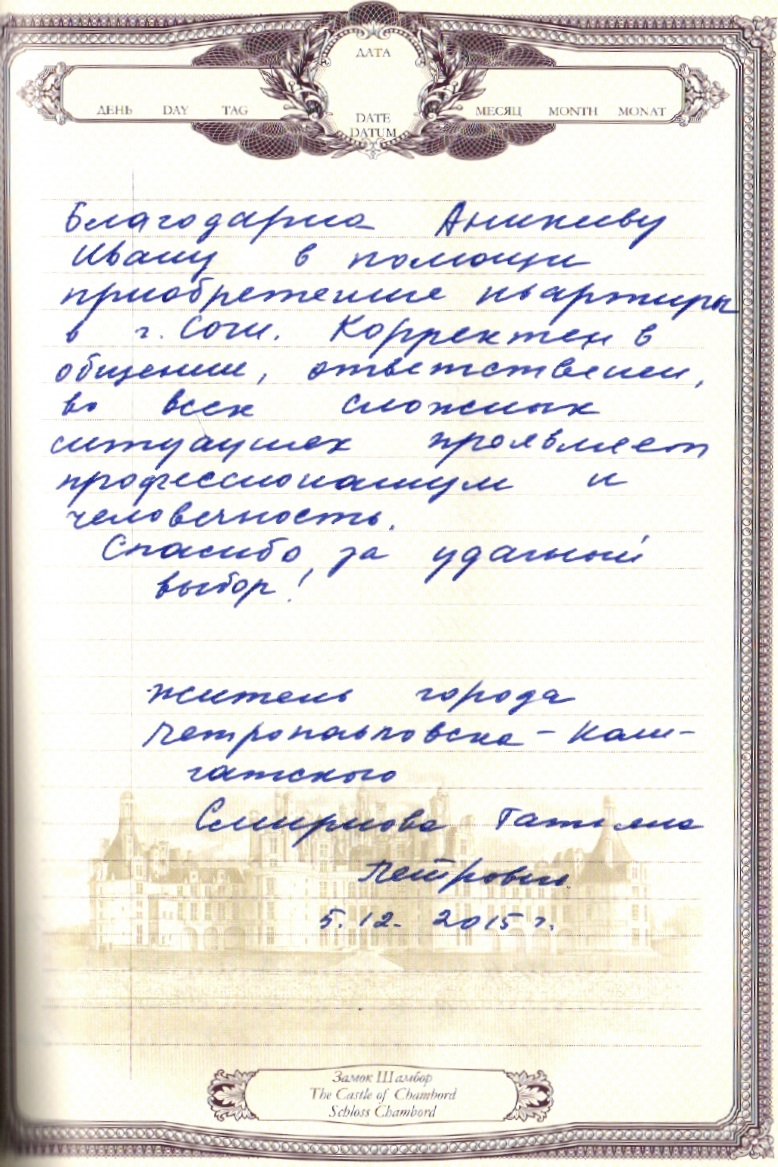 ДАТА
ДЕНЬ DAY TAG
DATE
DATUM
МЕСЯЦ MONTH MONAT
Благодарна Аникиеву
Ивану в помощи
приобретение квартиры
в г. Сочи. Корректен в
общении, ответственен,
во всех сложных
ситуациях проявляет
профессионализм и
человечность.
Спасибо за удачный
выбор!
житель города
Петропавловска - Кам-
чатского
Смирнова Татьяна
Петровна
5.12. 2015 г.
Замок Шамбор
The Castle of Chambord
Schloss Chambord